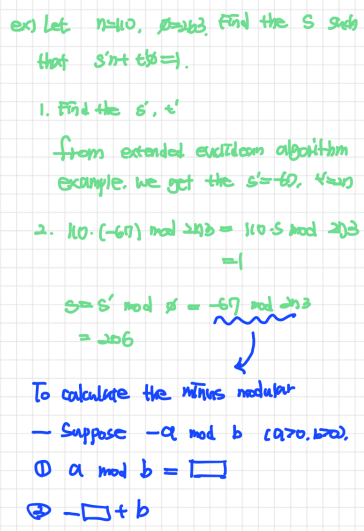 ex) Let n=110, ø=273. Find the S such
that s'n + tø=1.
1. Find the s', t'
from extended euclidean algorithm
example. we get the s'=-67, t'=27
2. 110·(-67) mod 273 = 110·S mod 273
=1
S = S' mod ø = -67 mod 273
= 206
To calculate the minus modular
— Suppose -a mod b (a>0, b>0).
① a mod b = □
② -□ + b